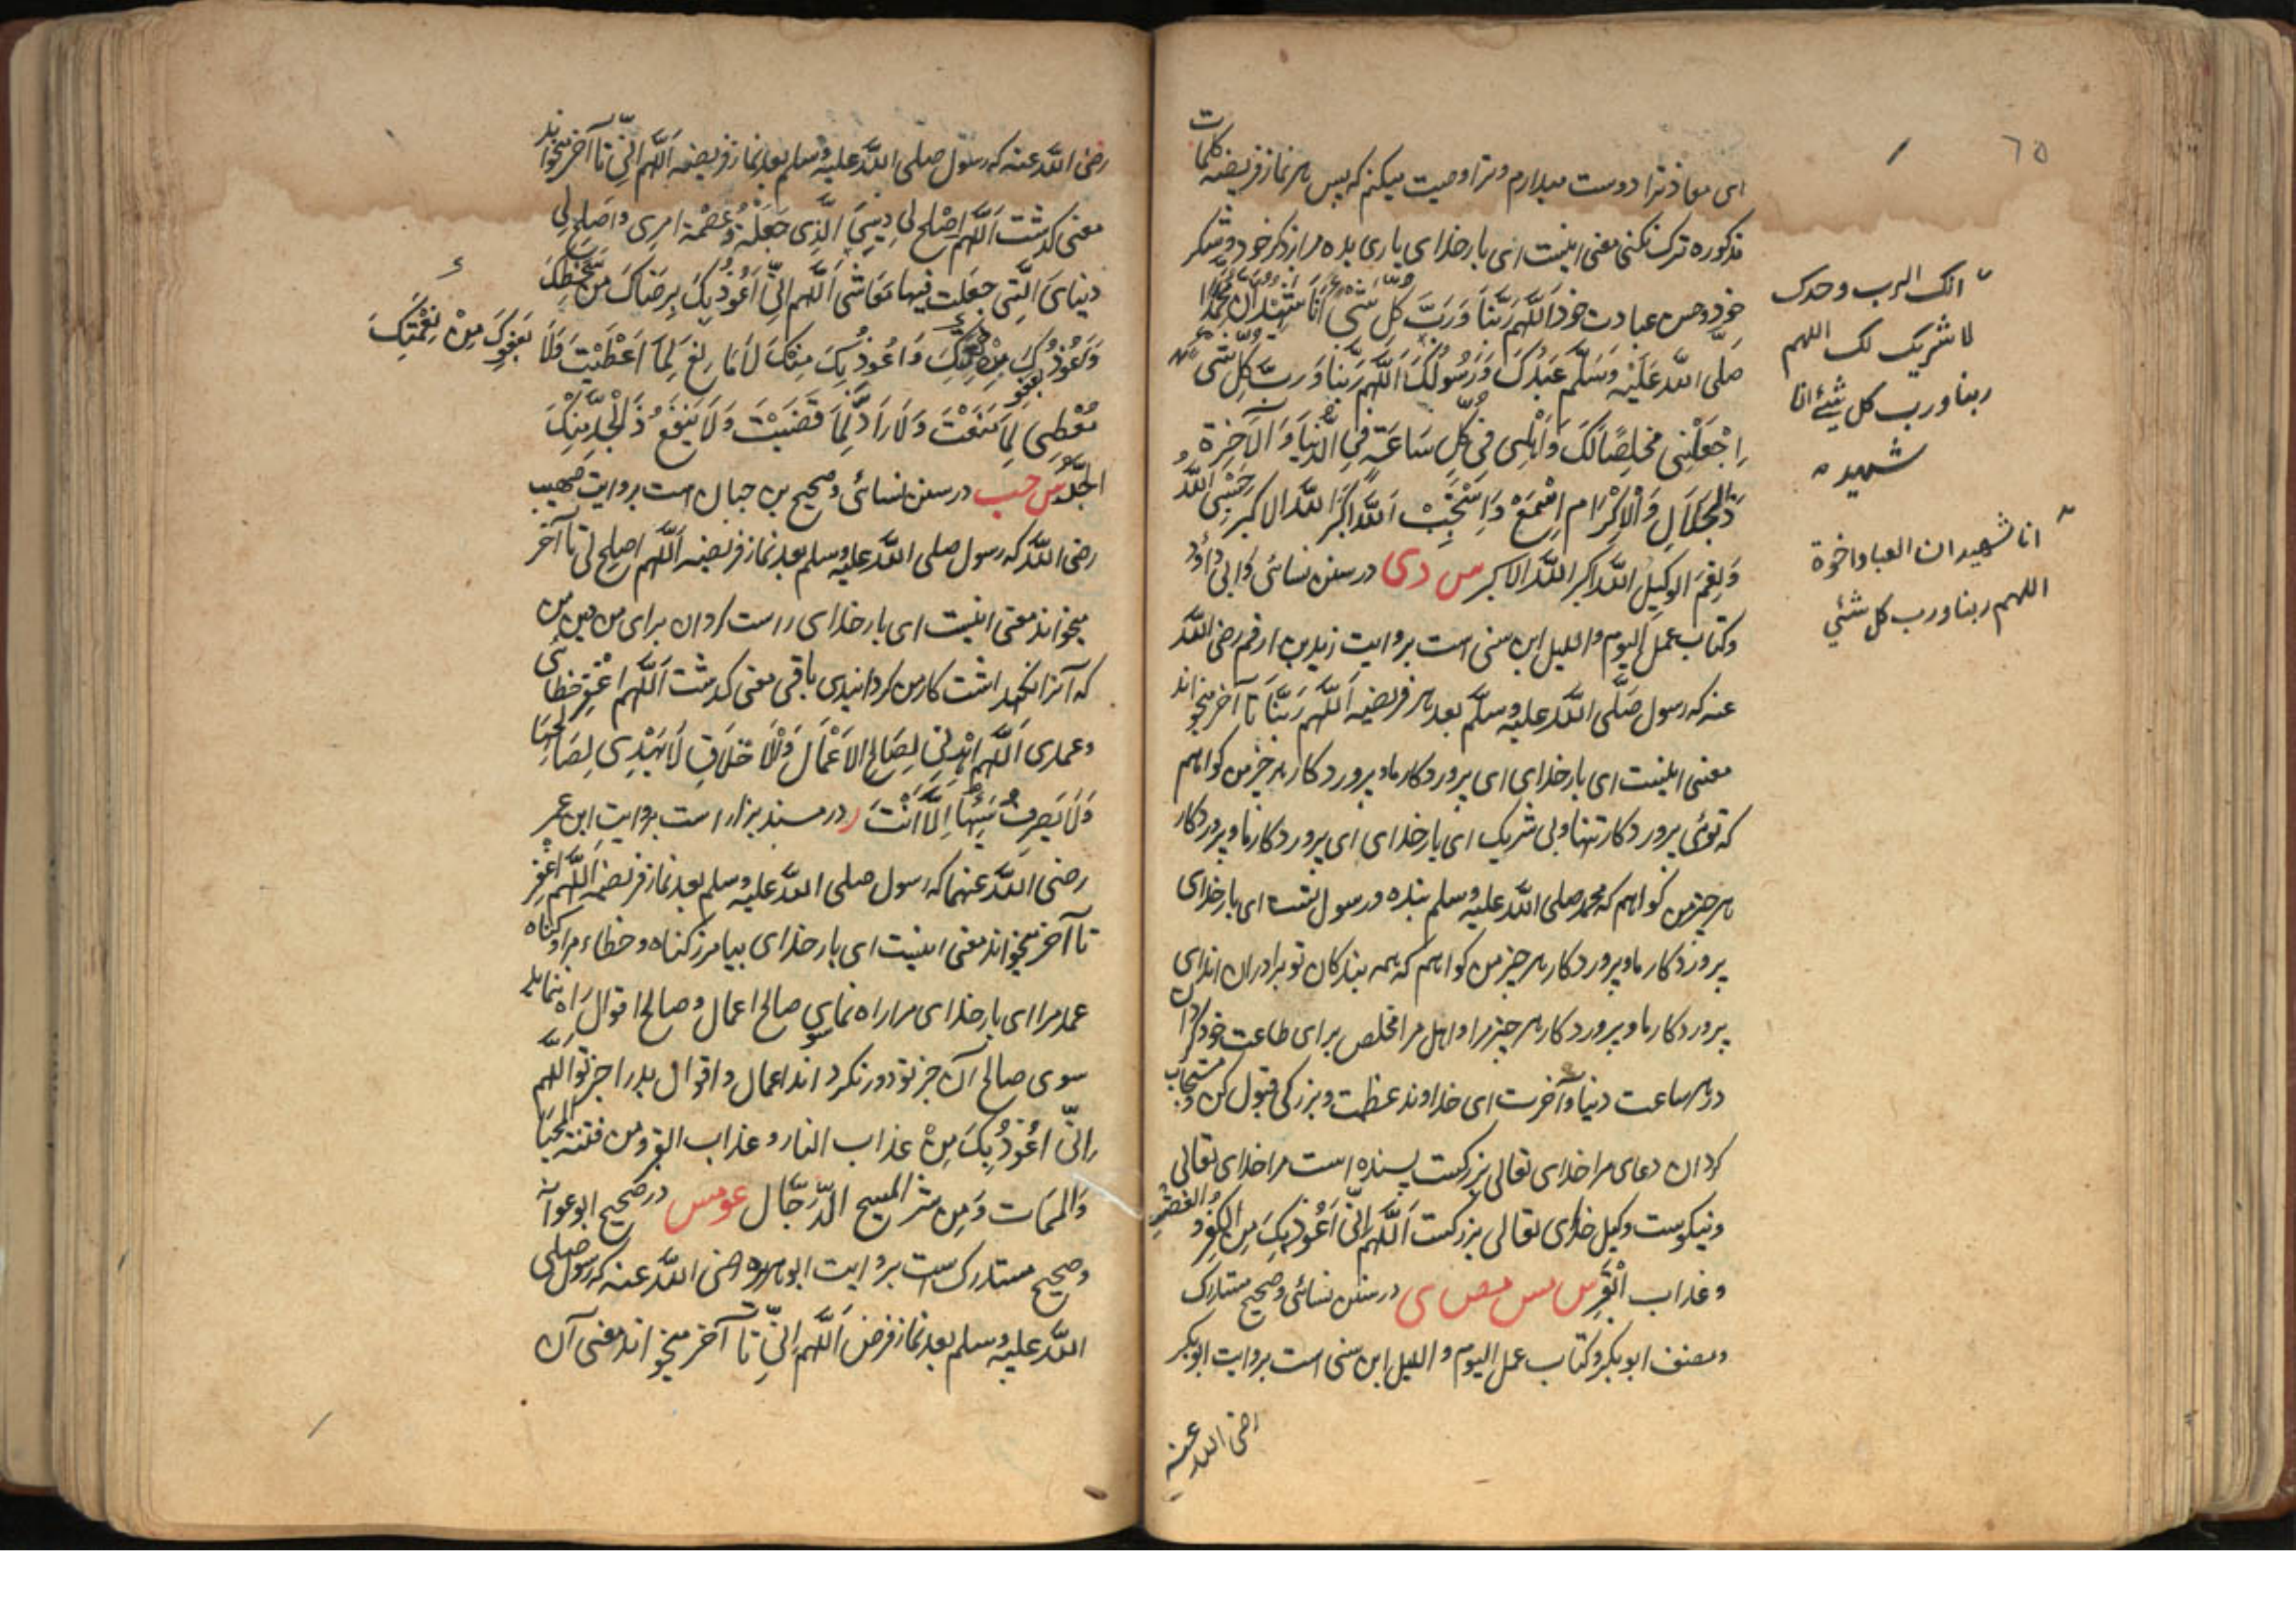 ٦٥
ای معاذ ترا دوست میدارم و ترا وصیت میکنم که پس هر نماز فریضه کلمات
مذکوره ترک نکنی معنی اینست ای بار خدای یاری بده مرا از ذکر خود و شکر
خود و حسن عبادت خود اَللّهُمَّ رَبَّنَا وَرَبَّ كُلِّ شَيْءٍ اَنَا شَهِيْدٌ اَنَّ مُحَمَّدًا
صلی اللّه عَلَيْهِ وَسَلَّمَ عَبْدُكَ وَرَسُولُكَ اَللّهُمَّ رَبَّنَا وَرَبَّ كُلِّ شَیْءٍ
اِجْعَلْنِی مُخْلِصًا لَكَ وَاَهْلِی فِی كُلِّ سَاعَةٍ فِی الدُّنْيَا وَ الْآخِرَةِ
ذَالْجَلَالِ وَالْاِكْرَام اِسْمَعْ وَاسْتَجِبْ اَللّهُ اَكْبَرُ اللّه الاکبر حَسْبِیَ اللّهُ
وَنِعْمَ الوکِيْلُ اللّه اکبر اللّه الاکبر س د ی در سنن نسائی و ابی داؤد
وکتاب عمل الیوم واللیل ابن سنی است بروایت زید بن ارقم رضی اللّه
عنه که رسول صَلَّی اللّه علیه وسلّم بعد هر فریضه اَللّهُمَّ رَبَّنَا تا آخر میخواند
معنی اینست ای بار خدای ای پروردکار ما و پروردکار هر چیز من کواهم
که توئی پروردکار تنها و بی شریک ای بار خدای ای پروردکار ما و پروردکار
هر چیز من کواهم که محمد صلی اللّه علیه وسلم بنده و رسول تست ای بار خدای
پروردکار ما و پروردکار هر چیز من کواهم که همه بندکان تو برادران اند ای
پروردکار ما و پروردکار هر چیز مرا و اهل مرا مخلص برای طاعت خود کردان
در هر ساعت دنیا و آخرت ای خداوند عظمت و بزرکی قبول کن و مستجاب
کردان دعای مرا خدای تعالی بزرکست پسنده است مرا خدای تعالی
و نیکوست وکیل خدای تعالی بزرکست اَللّهُمَّ اِنِّی اَعُوْذُ بِكَ مِنَ الکُفْرِ وَالْفَقْرِ
وعذاب الْقَبْرِ س مس مص ی در سنن نسائی و صحیح مستدرک
ومصنف ابوبکر وکتاب عمل الیوم و اللیل ابن سنی است بروایت ابوبکر
رضی اللّه عنه
انک الرب وحدک
لا شریک لک اللهم
ربنا ورب کل شیئ انا
شهید
انا شهید ان العباد اخوة
اللهم ربنا ورب کل شئي
رضی اللّه عنه که رسول صلی اللّه علیه وسلم بعد نماز فریضه اَللّهُمَّ اِنِّی تا آخر میخواند
معنی کذشت اَللّهُمَّ اَصْلِحْ لِی دِيْنِیَ الَّذِی جَعَلْتَهُ عِصْمَةَ امرِی و اَصْلِحْ لِی
دنیایَ الَّتِی جَعَلْتَ فِيهَا مَعَاشِی اَللّهُمَّ اِنِّی اَعُوْذُ بِكَ بِرِضَاكَ مِنْ سَخَطِكَ
وَاَعُوْذُ بِعَفْوِكَ مِنْ نِقْمَتِكَ وَاَعُوْذُ بِكَ مِنْكَ لَا مَانِعَ لِمَا اَعْطَيْتَ وَلَا
بِعَفْوِكَ مِنْ نِقْمَتِكَ
مُعْطِیَ لِمَا مَنَعْتَ وَلَا رَادَّ لِمَا قَضَيْتَ وَلَا يَنْفَعُ ذَا الْجَدِّ مِنْكَ
الْجَدُّ س حب در سنن نسائی و صحیح بن حبان است بروایت صهیب
رضی اللّه که رسول صلی اللّه علیه وسلم بعد نماز فریضه اَللّهُمَّ اصلح لی تا آخر
میخواند معنی اینست ای بار خدای راست کردان برای من دین من
که آنرا نکهداشت کار من کردانیدی باقی معنی کذشت اَللّهُمَّ اغْفِرْ خطائی
وعمدی اَللّهُمَّ اهْدِنِی لِصَالِحِ الاَعْمَالِ وَالْاَخْلَاقِ لَا يَهْدِی لِصَالِحِهَا
وَلَا يَصْرِفُ سَيِّئَهَا اِلَّا اَنْتَ ر در مسند بزار است بروایتِ ابن عمر
رضی اللّه عنهما که رسول صلی اللّه علیه وسلم بعد نماز فریضه اَللّهُمَّ اغْفِرْ
تا آخر میخواند معنی اینست ای بار خدای بیامرز کناه و خطاء مرا و کناه
عمد مرا ای بار خدای مرا راه نمای سوی صالح اعمال و صالح اقوال راه ننماید
سوی صالح آن جز تو و دور نکرداند اعمال و اقوال بد را جز تو اَللّهُمَّ
اِنِّی اَعُوْذُ بِكَ مِنْ عذاب النار و عذاب القبر ومن فتنة الْمَحْيَا
وَالْمَمَات وَمِن شر المسیح الدَّجَّال عو مس در صحیح ابوعوانه
وصحیح مستدرک است بروایت ابوهریره رضی اللّه عنه که رسول صلی
اللّه علیه وسلم بعد نماز فرض اَللّهُمَّ اِنِّی تا آخر میخواند معنی آن